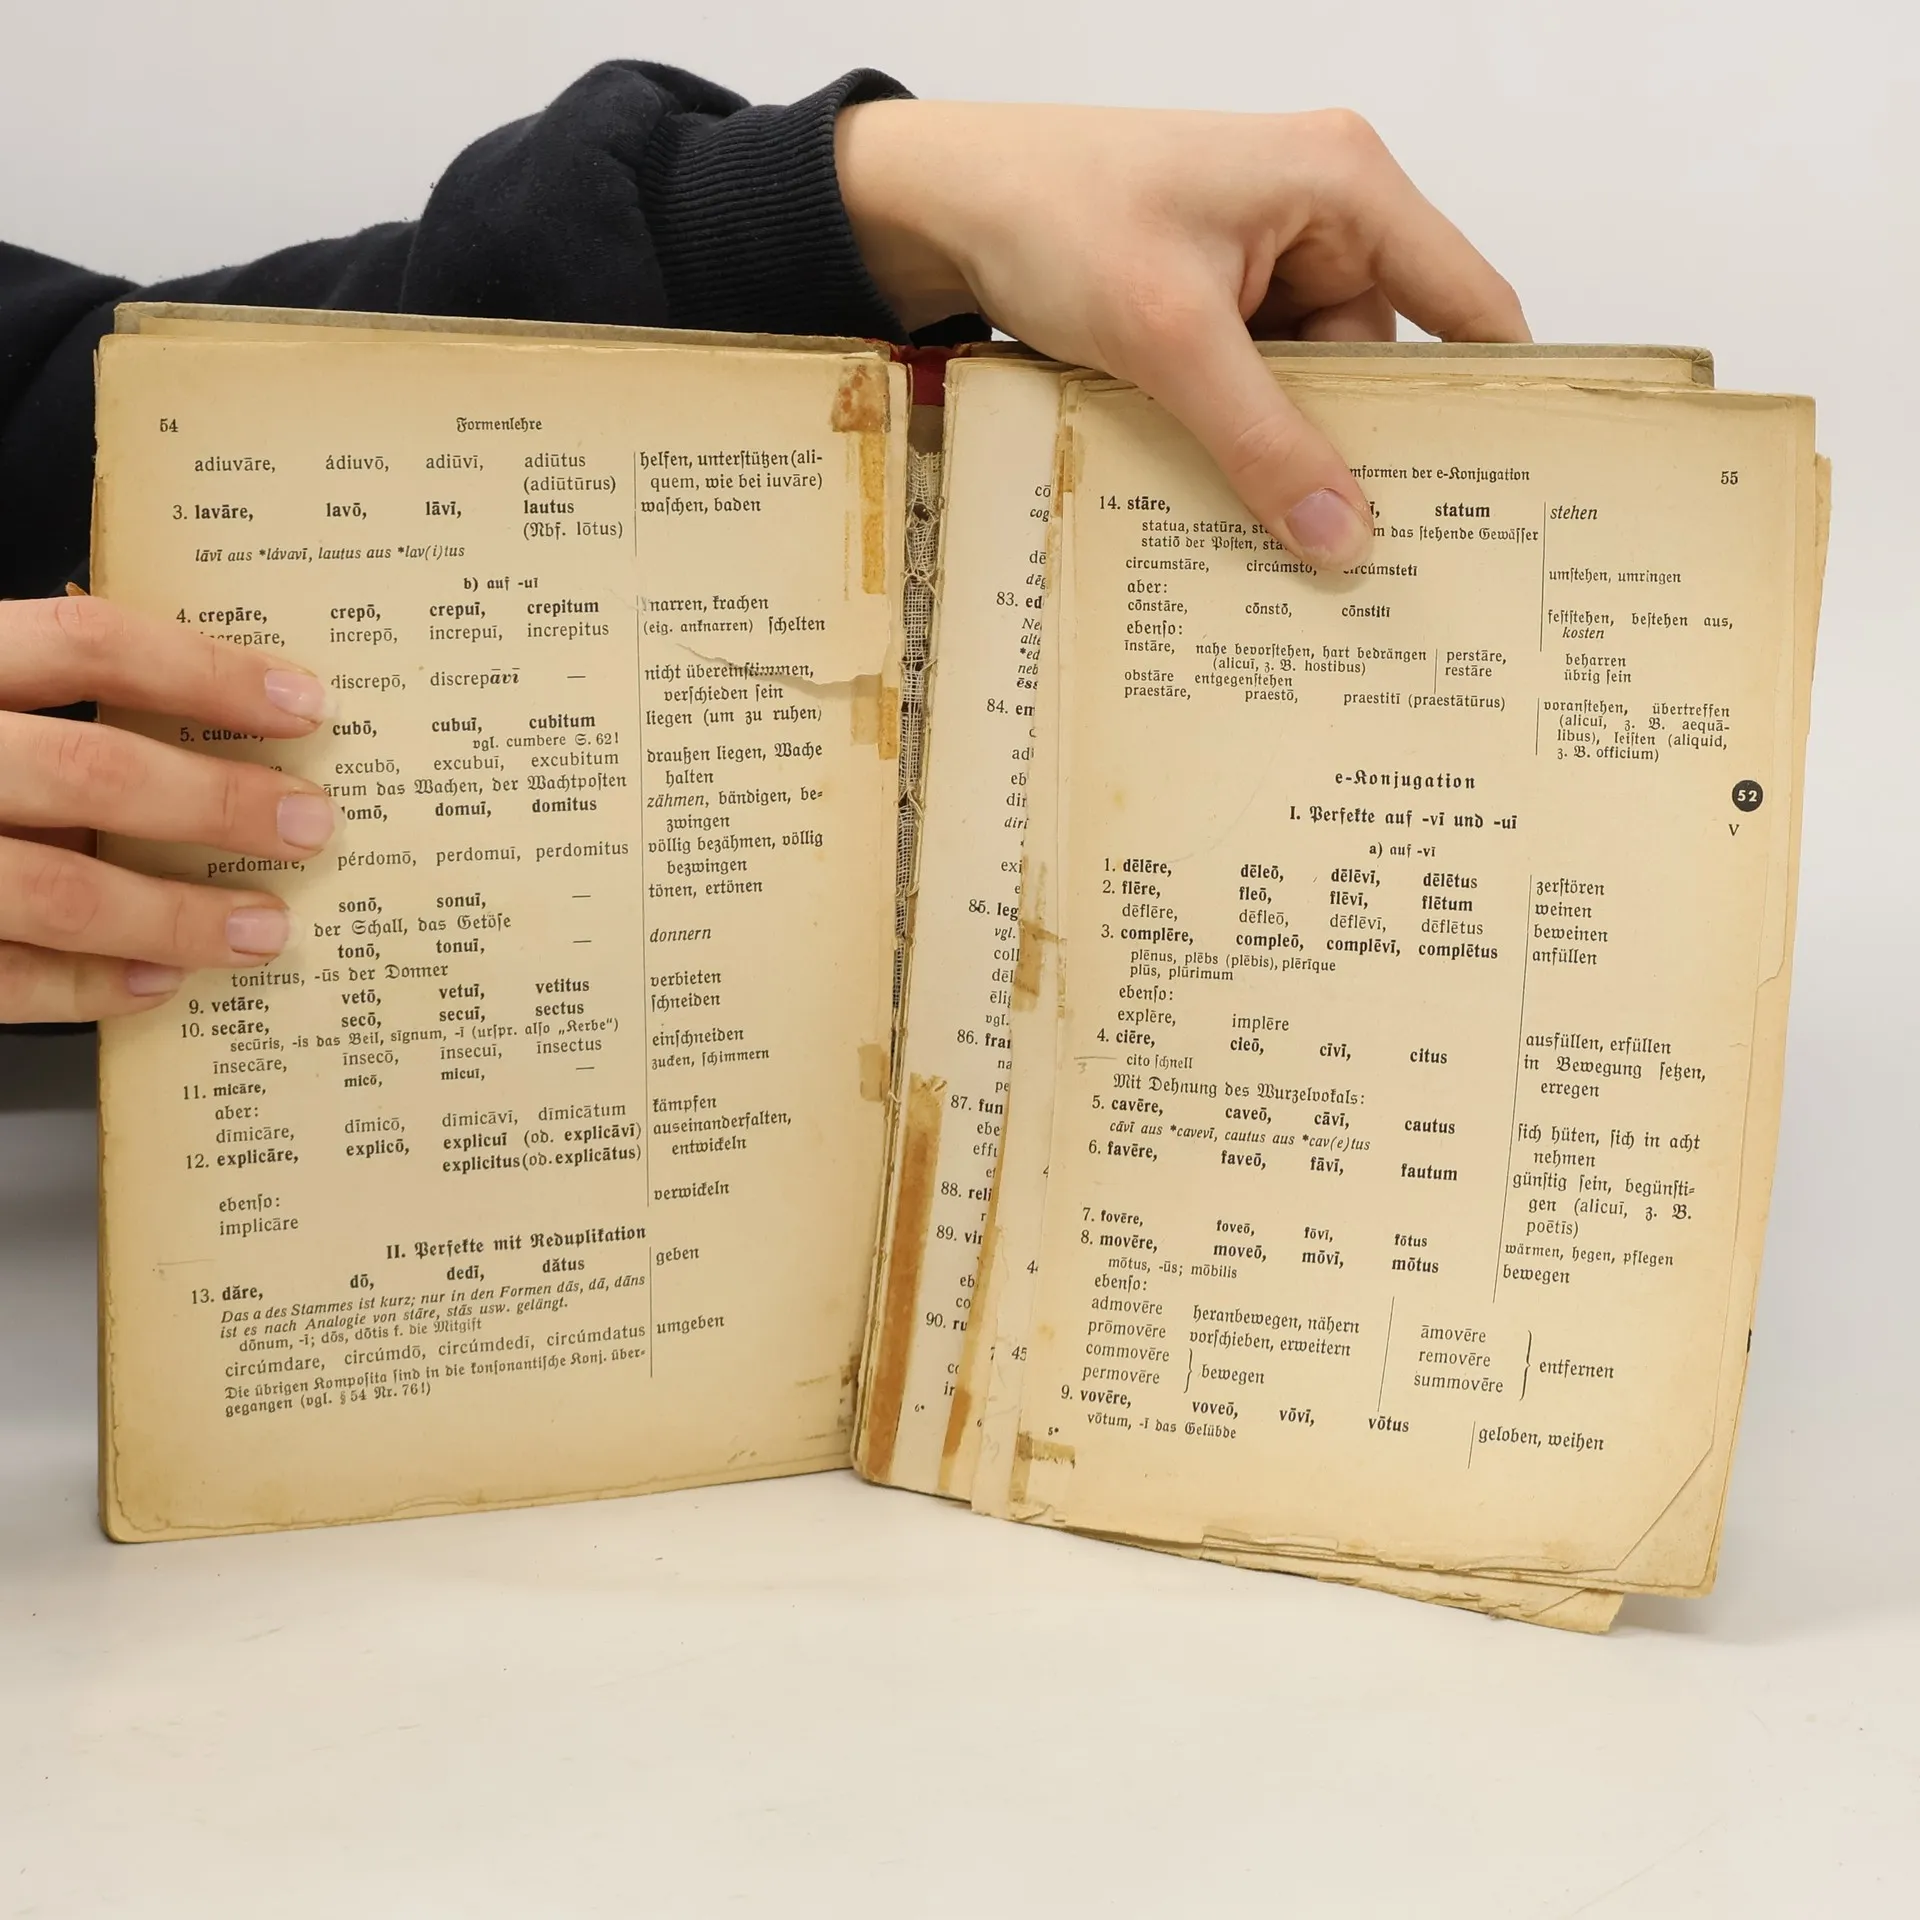 54 Formenlehre
adiuvāre, ádiuvō, adiūvī, adiūtus helfen, unterſtützen (ali-
(adiūtūrus) quem, wie bei iuvāre)
3. lavāre, lavō, lāvī, lautus waſchen, baden
(Nbf. lōtus)
lāvī aus *lávavī, lautus aus *lav(i)tus
b) auf -uī
4. crepāre, crepō, crepuī, crepitum knarren, krachen
increpāre, increpō, increpuī, increpitus (eig. anknarren) ſchelten
discrepō, discrepāvī — nicht übereinſtimmen,
verſchieden ſein
5. cubāre, cubō, cubuī, cubitum liegen (um zu ruhen)
vgl. cumbere S. 62!
excubō, excubuī, excubitum draußen liegen, Wache
halten
ārum das Wachen, der Wachtpoſten
domō, domuī, domitus zähmen, bändigen, be-
zwingen
perdomāre, pérdomō, perdomuī, perdomitus völlig bezähmen, völlig
bezwingen
sonō, sonuī, — tönen, ertönen
der Schall, das Getöſe
tonō, tonuī, — donnern
tonitrus, -ūs der Donner
9. vetāre, vetō, vetuī, vetitus verbieten
10. secāre, secō, secuī, sectus ſchneiden
secūris, -is das Beil, sīgnum, -ī (urſpr. alſo „Kerbe“)
īnsecāre, īnsecō, īnsecuī, īnsectus einſchneiden
11. micāre, micō, micuī, — zucken, ſchimmern
aber:
dīmicāre, dīmicō, dīmicāvī, dīmicātum kämpfen
12. explicāre, explicō, explicuī (od. explicāvī) auseinanderfalten,
explicitus (od. explicātus) entwickeln
ebenſo:
implicāre verwickeln
II. Perfekte mit Reduplikation
13. dăre, dō, dedī, dătus geben
Das a des Stammes ist kurz; nur in den Formen dās, dā, dāns
ist es nach Analogie von stāre, stās usw. gelängt.
dōnum, -ī; dōs, dōtis f. die Mitgift
circúmdare, circúmdō, circúmdedī, circúmdatus umgeben
Die übrigen Kompoſita ſind in die konſonantiſche Konj. über-
gegangen (vgl. § 54 Nr. 76!)
cō
cog
dē
dēg
83. ed
Ne
alte
*ed
neb
ēss
84. em
adi
eb
dir
diri
exi
e
85. leg
vgl.
coll
dēl
ēli
vgl.
86. fra
na
pe
87. fun
ebe
effu
ef
88. reli
89. vin
eb
co
90. ru
co
in
6*
45
mformen der e-Konjugation 55
14. stāre, ī, statum stehen
statua, statūra, m das ſtehende Gewäſſer
statiō der Poſten,
circumstāre, circúmstō, circúmstetī umſtehen, umringen
aber:
cōnstāre, cōnstō, cōnstitī feſtſtehen, beſtehen aus,
kosten
ebenſo:
īnstāre, nahe bevorſtehen, hart bedrängen perstāre, beharren
(alicuī, z. B. hostibus) restāre übrig ſein
obstāre entgegenſtehen
praestāre, praestō, praestitī (praestātūrus) voranſtehen, übertreffen
(alicuī, z. B. aequā-
libus), leiſten (aliquid,
z. B. officium)
e-Konjugation
52
I. Perfekte auf -vī und -uī
V
a) auf -vī
1. dēlēre, dēleō, dēlēvī, dēlētus zerſtören
2. flēre, fleō, flēvī, flētum weinen
dēflēre, dēfleō, dēflēvī, dēflētus beweinen
3. complēre, compleō, complēvī, complētus anfüllen
plēnus, plēbs (plēbis), plērīque
plūs, plūrimum
ebenſo:
explēre, implēre ausfüllen, erfüllen
4. ciēre, cieō, cīvī, citus in Bewegung ſetzen,
cito ſchnell erregen
Mit Dehnung des Wurzelvokals:
5. cavēre, caveō, cāvī, cautus ſich hüten, ſich in acht
nehmen
cāvī aus *cavevī, cautus aus *cav(e)tus
6. favēre, faveō, fāvī, fautum günſtig ſein, begünſti-
gen (alicuī, z. B.
poētīs)
7. fovēre, foveō, fōvī, fōtus wärmen, hegen, pflegen
8. movēre, moveō, mōvī, mōtus bewegen
mōtus, -ūs; mōbilis
ebenſo:
admovēre heranbewegen, nähern āmovēre
prōmovēre vorſchieben, erweitern removēre entfernen
commovēre bewegen summovēre
permovēre
9. vovēre, voveō, vōvī, vōtus geloben, weihen
vōtum, -ī das Gelübde
5*